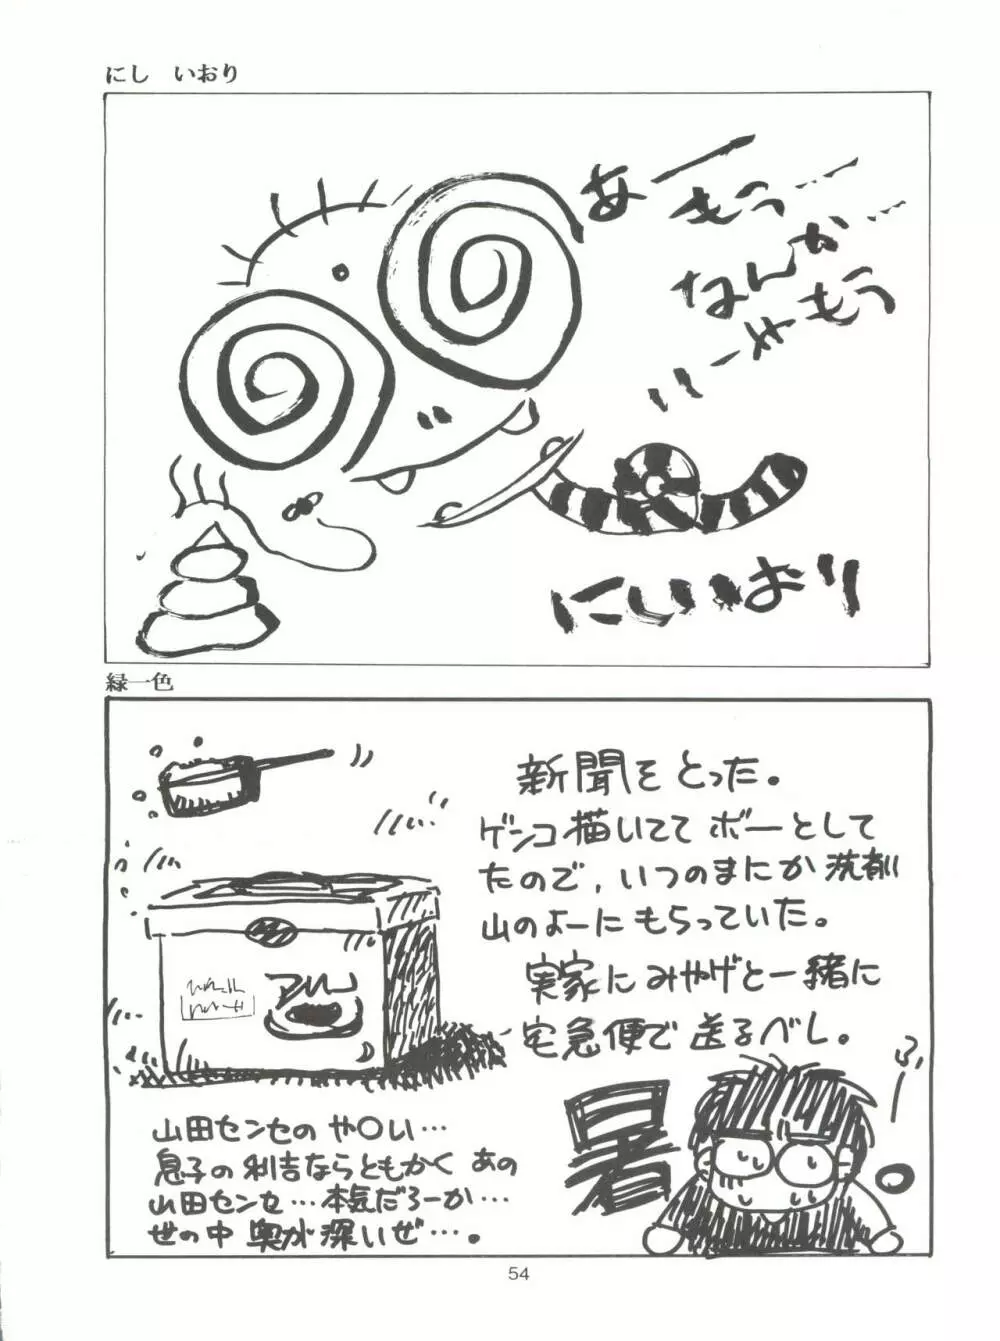 にし いおり
あー
もう……
なんか……
もう
にしいおり
緑一色
新聞をとった。
ゲンコ描いててボーとして
たので、いつのまにか洗剤
山のよーにもらっていた。
実家にみやげと一緒に
宅急便で送るべし。
アリエール
暑
ふぃー
山田センセのや〇い…
息子の利吉ならともかく あの
山田センセ…本気だろーか…
世の中 奥が深いぜ…。
54